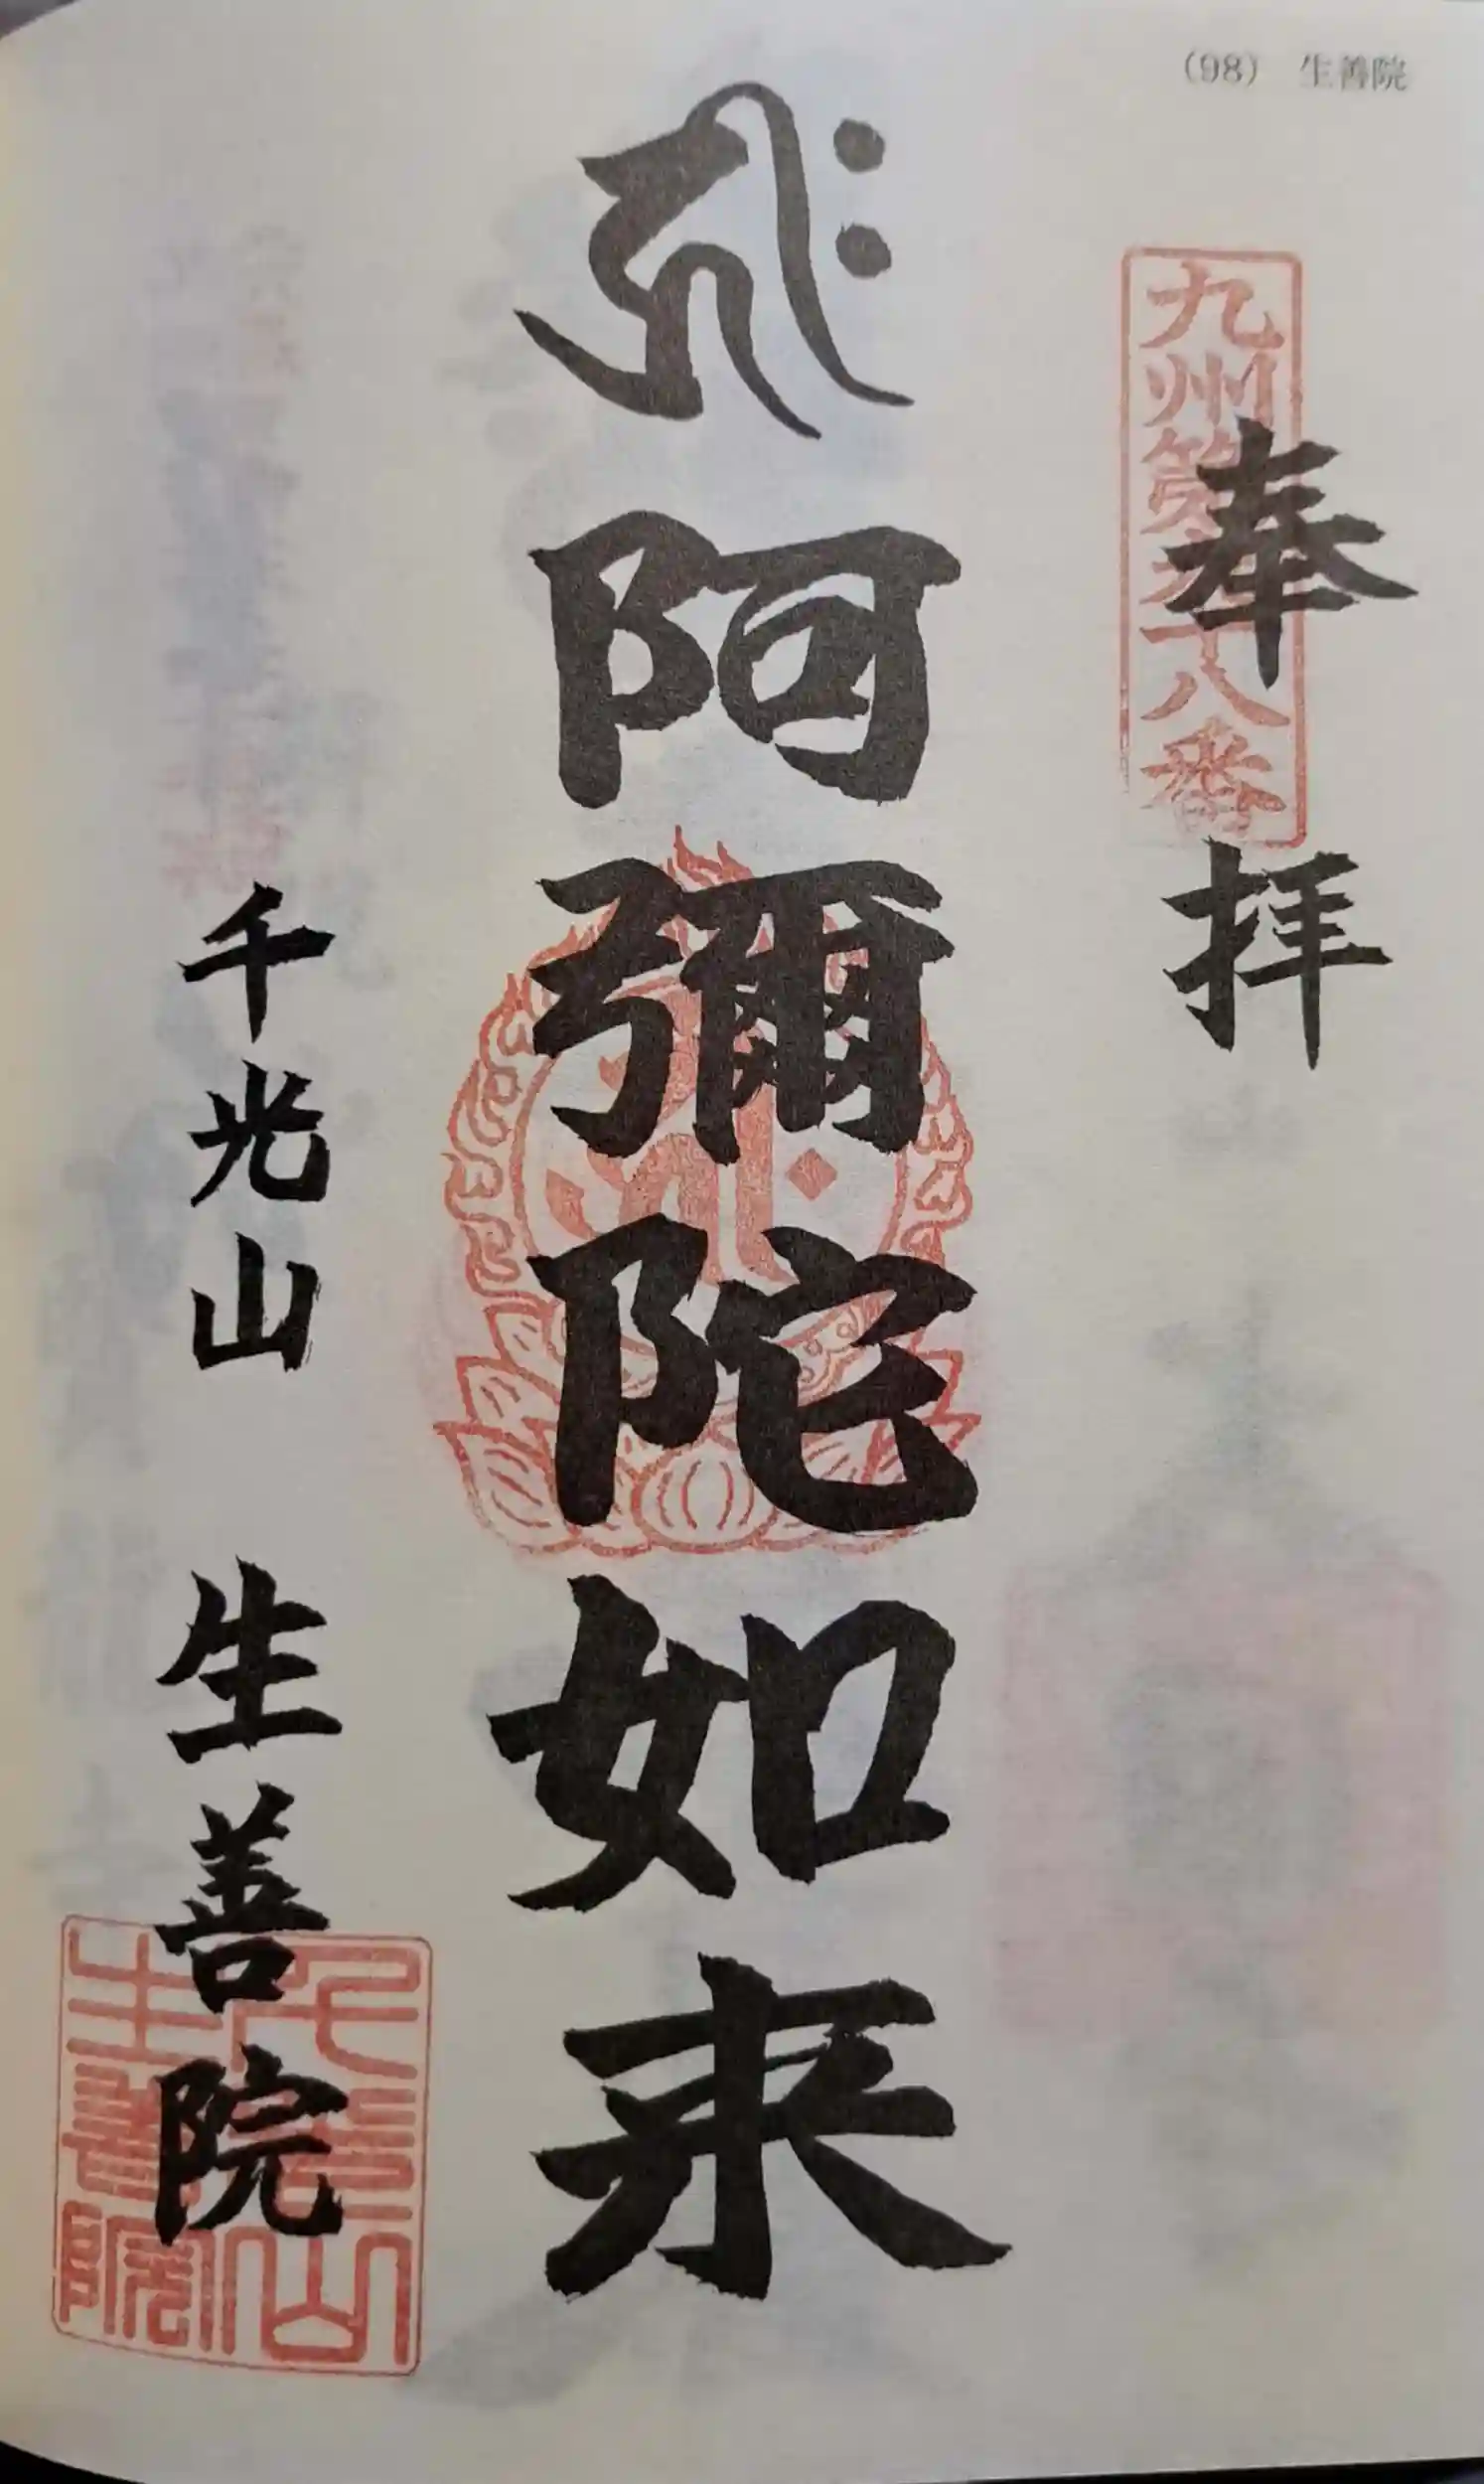 (98) 生善院
九州第九十八番
奉拝
阿彌陀如来
千光山 生善院
千光山
生善院